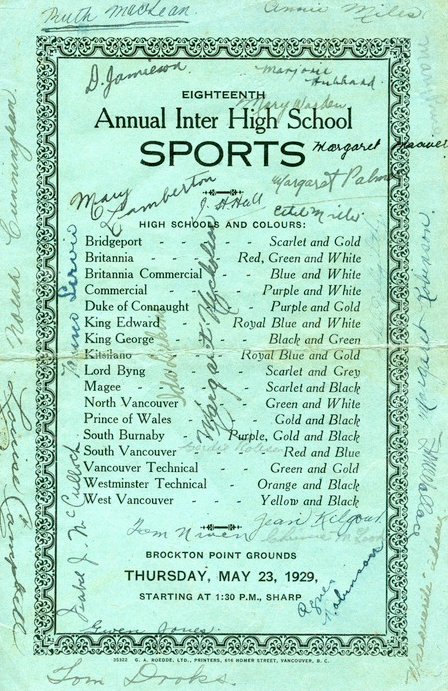 Ruth MacLean.
Annie Miles.
D. Jamieson.
Marjorie
Hubbard
EIGHTEENTH
Annual Inter High School
SPORTS
Margaret
Margaret Palmer
Mary
Lamberton
J. A. Hall
Ethel Miles
HIGH SCHOOLS AND COLOURS:
Bridgeport - - - Scarlet and Gold
Britannia - - Red, Green and White
Britannia Commercial - - Blue and White
Commercial - - - Purple and White
Duke of Connaught - - Purple and Gold
King Edward - - Royal Blue and White
King George - - - Black and Green
Kitsilano - - - Royal Blue and Gold
Lord Byng - - - Scarlet and Grey
Magee - - - Scarlet and Black
North Vancouver - - Green and White
Prince of Wales - - Gold and Black
South Burnaby - - Purple, Gold and Black
South Vancouver - - Red and Blue
Vancouver Technical - - Green and Gold
Westminster Technical - Orange and Black
West Vancouver - - Yellow and Black
Margaret Nicholson
Norah Cunningham
Campbell
Margaret Robinson
Tom Niven
Jean Kilgour
BROCKTON POINT GROUNDS
THURSDAY, MAY 23, 1929,
STARTING AT 1:30 P.M., SHARP
Agnes
Johnson
Gwen Jones.
35322 G. A. ROEDDE, LTD., PRINTERS, 616 HOMER STREET, VANCOUVER, B. C.
Tom Brooks.